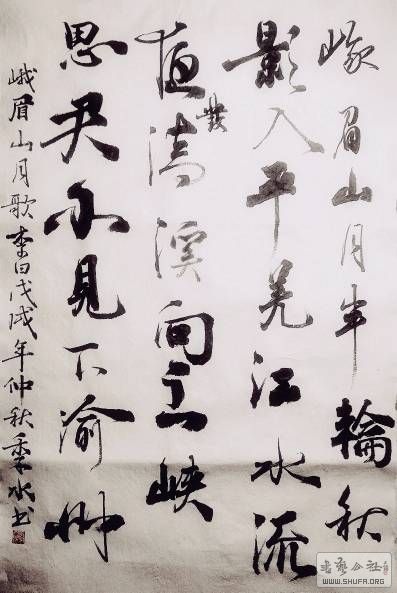 峨眉山月半輪秋
影入平羌江水流
夜發清溪向三峽
思君不見下渝州
峨眉山月歌李白戊戌年仲秋季水书
书艺公社
WWW.SHUFA.ORG